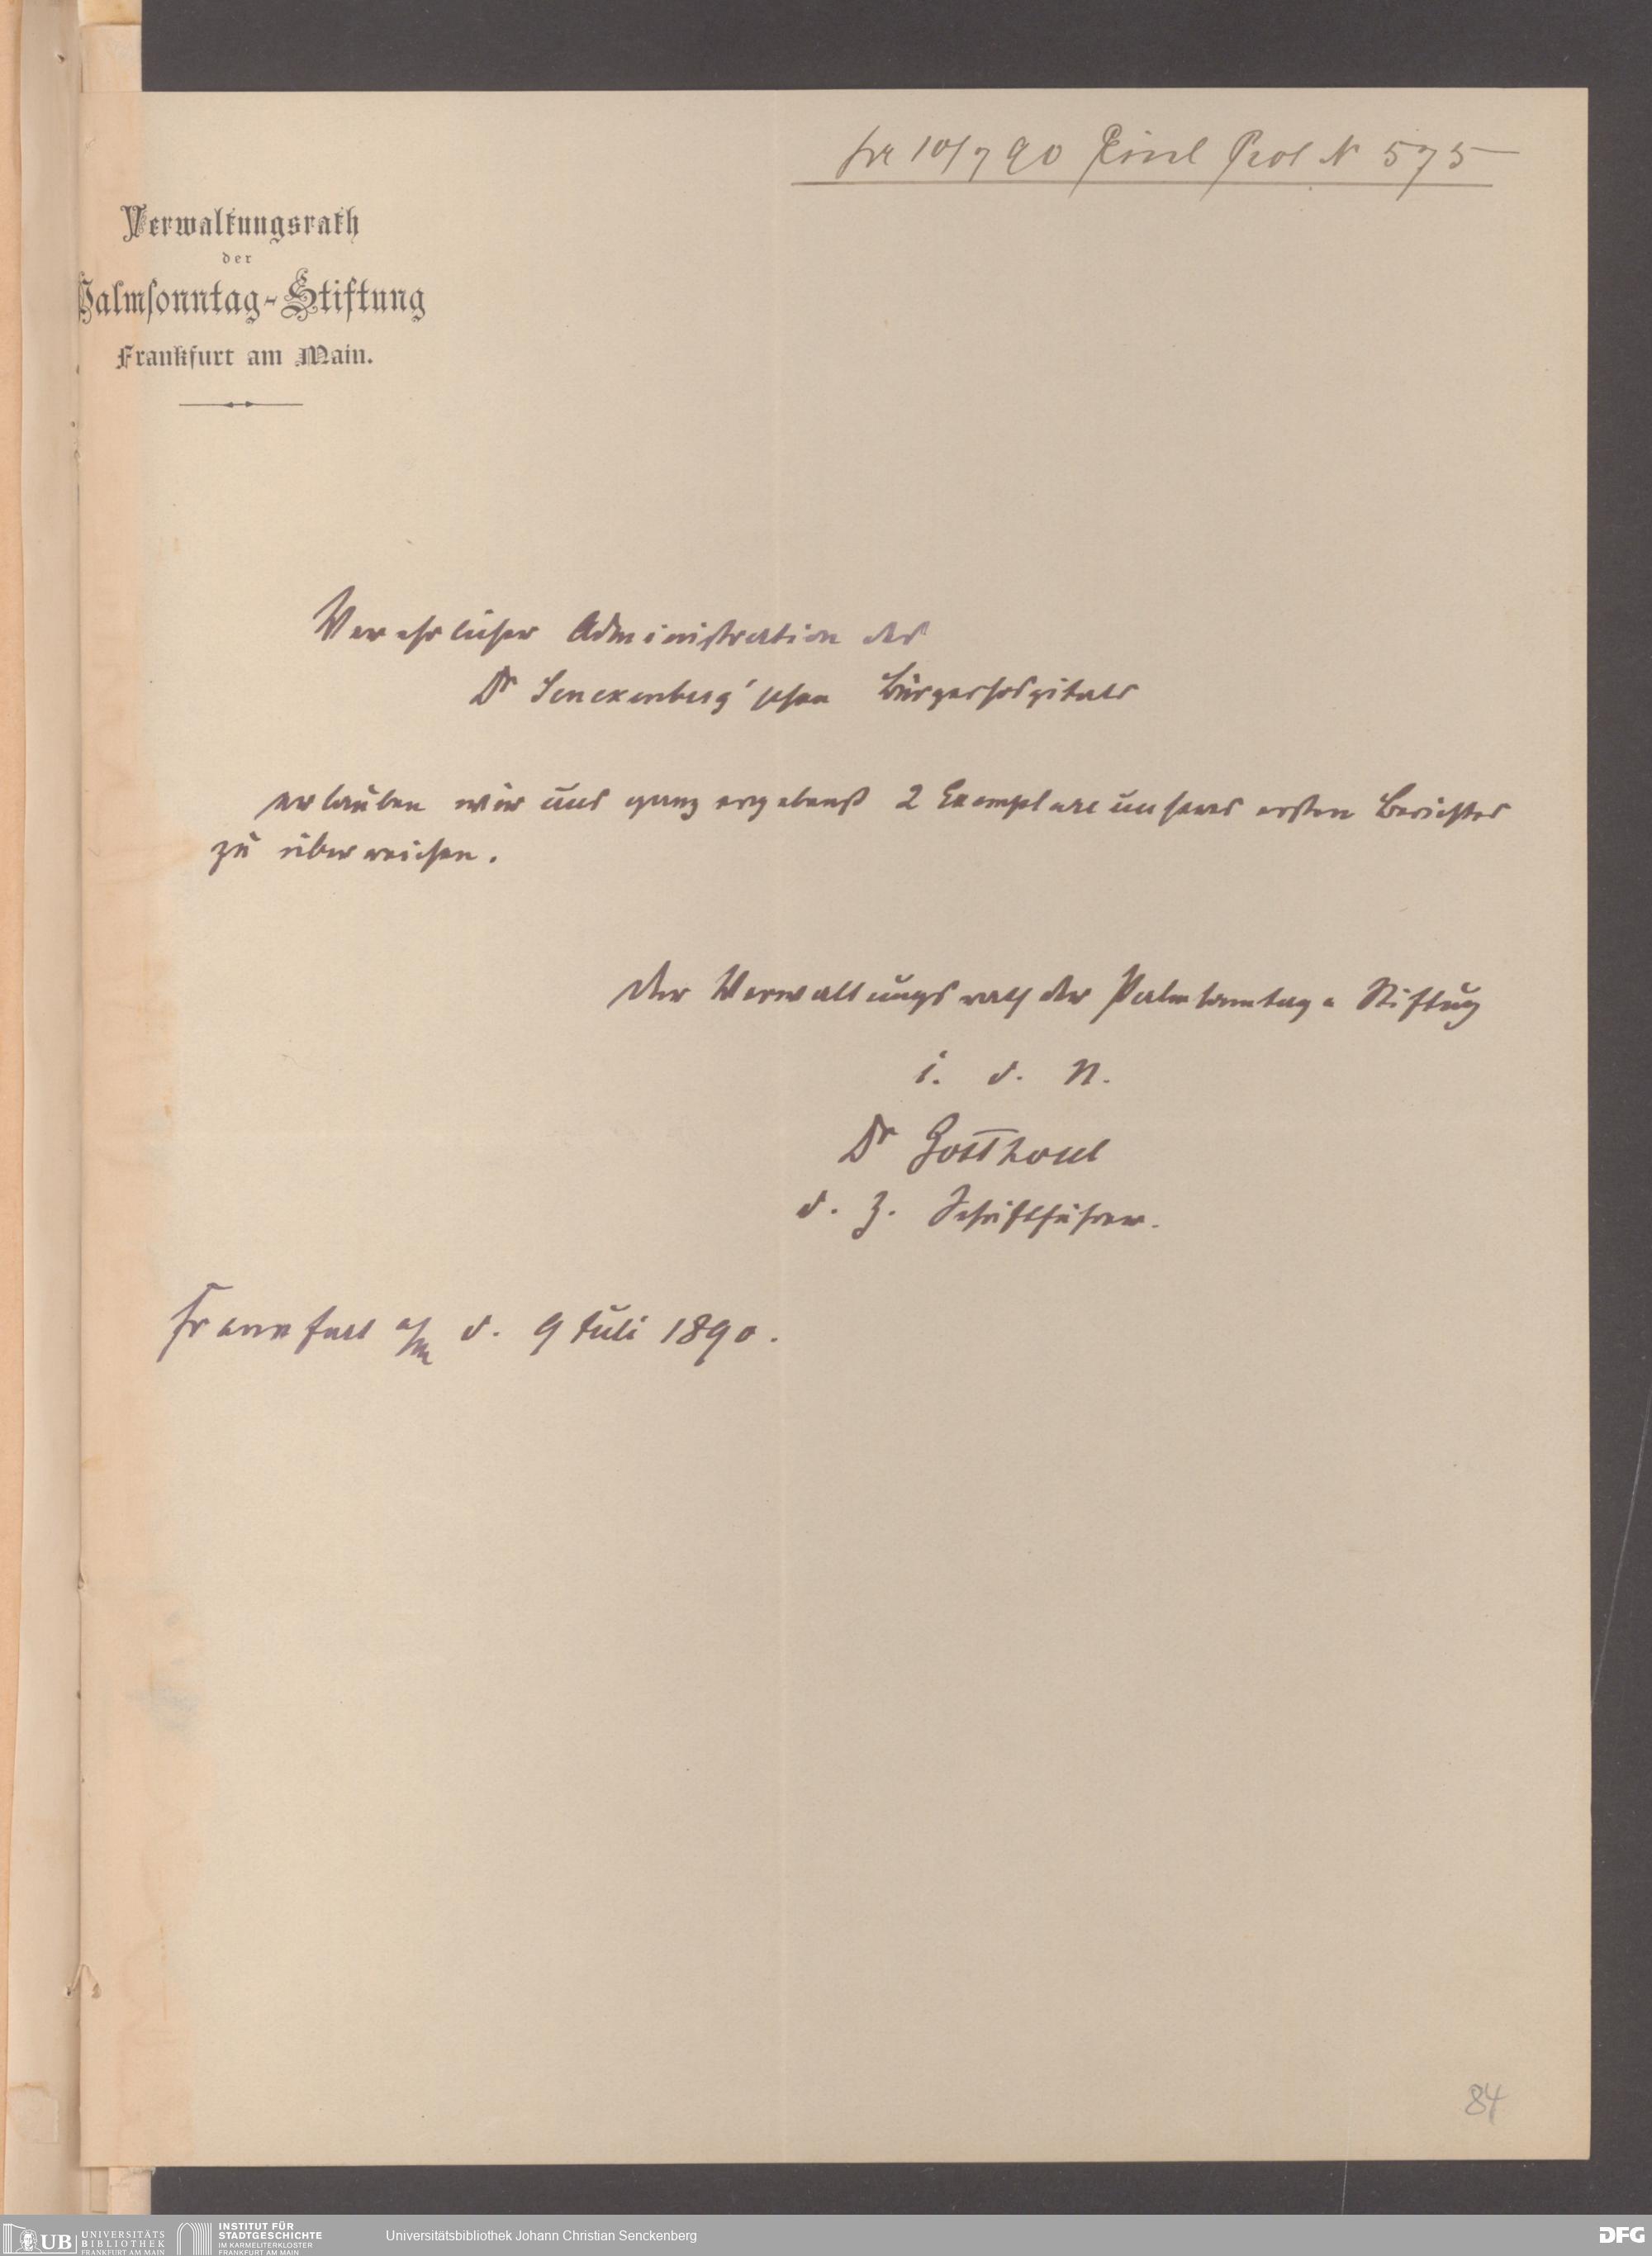 pr 10/7 90 Einl Prot N 575
Verwaltungsrath
der
Palmsonntag-Stiftung
Frankfurt am Main.
Verehrlicher Administration des
Dr Senckenberg'schen Bürgerhospitals
erlauben wir uns ganz ergebenst 2 Exemplare unseres ersten Berichtes
zu überreichen.
Der Verwaltungsrath der Palmsonntag-Stiftung
i. d. N.
Dr
d. Z. Schriftführer.
Frankfurt a/M d. 9 Juli 1890.
84
UB UNIVERSITÄTS
BIBLIOTHEK
FRANKFURT AM MAIN
INSTITUT FÜR
STADTGESCHICHTE
IM KARMELITERKLOSTER
FRANKFURT AM MAIN
Universitätsbibliothek Johann Christian Senckenberg
DFG